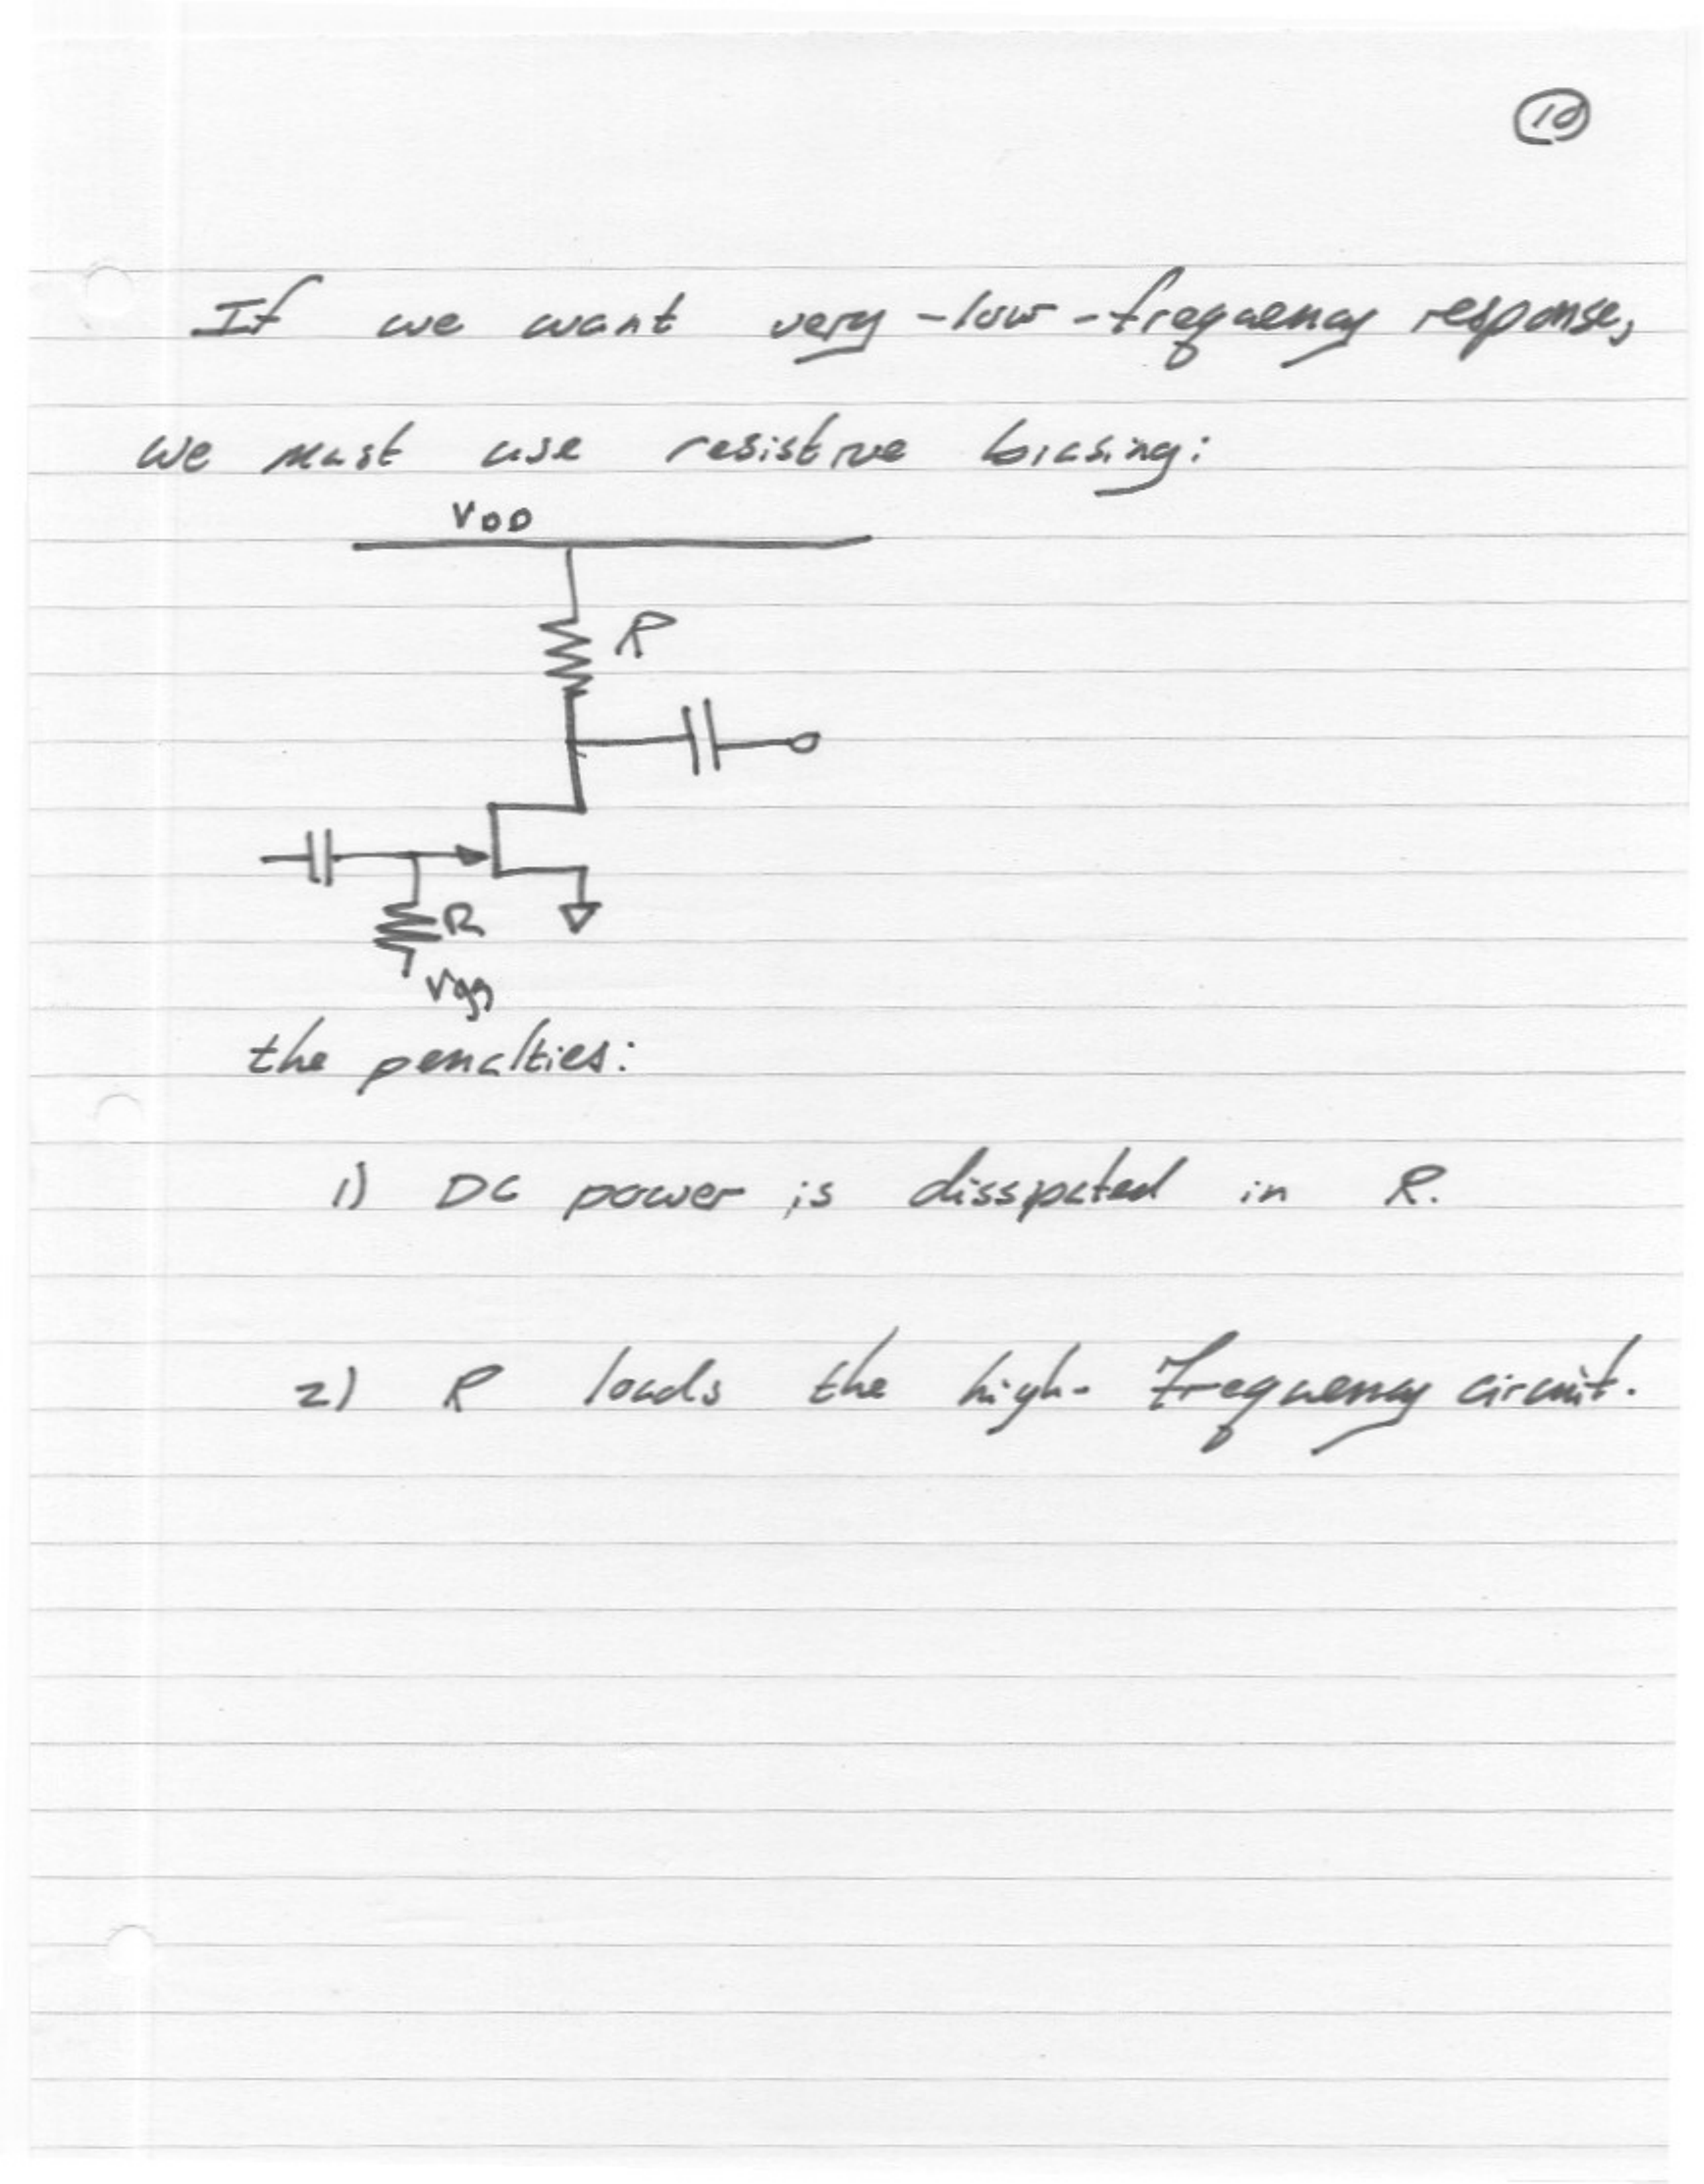 10
If we want very-low-frequency response,
we must use resistive biasing:
VDD
R
R
Vgg
the penalties:
1) DC power is dissipated in R.
2) R loads the high-frequency circuit.